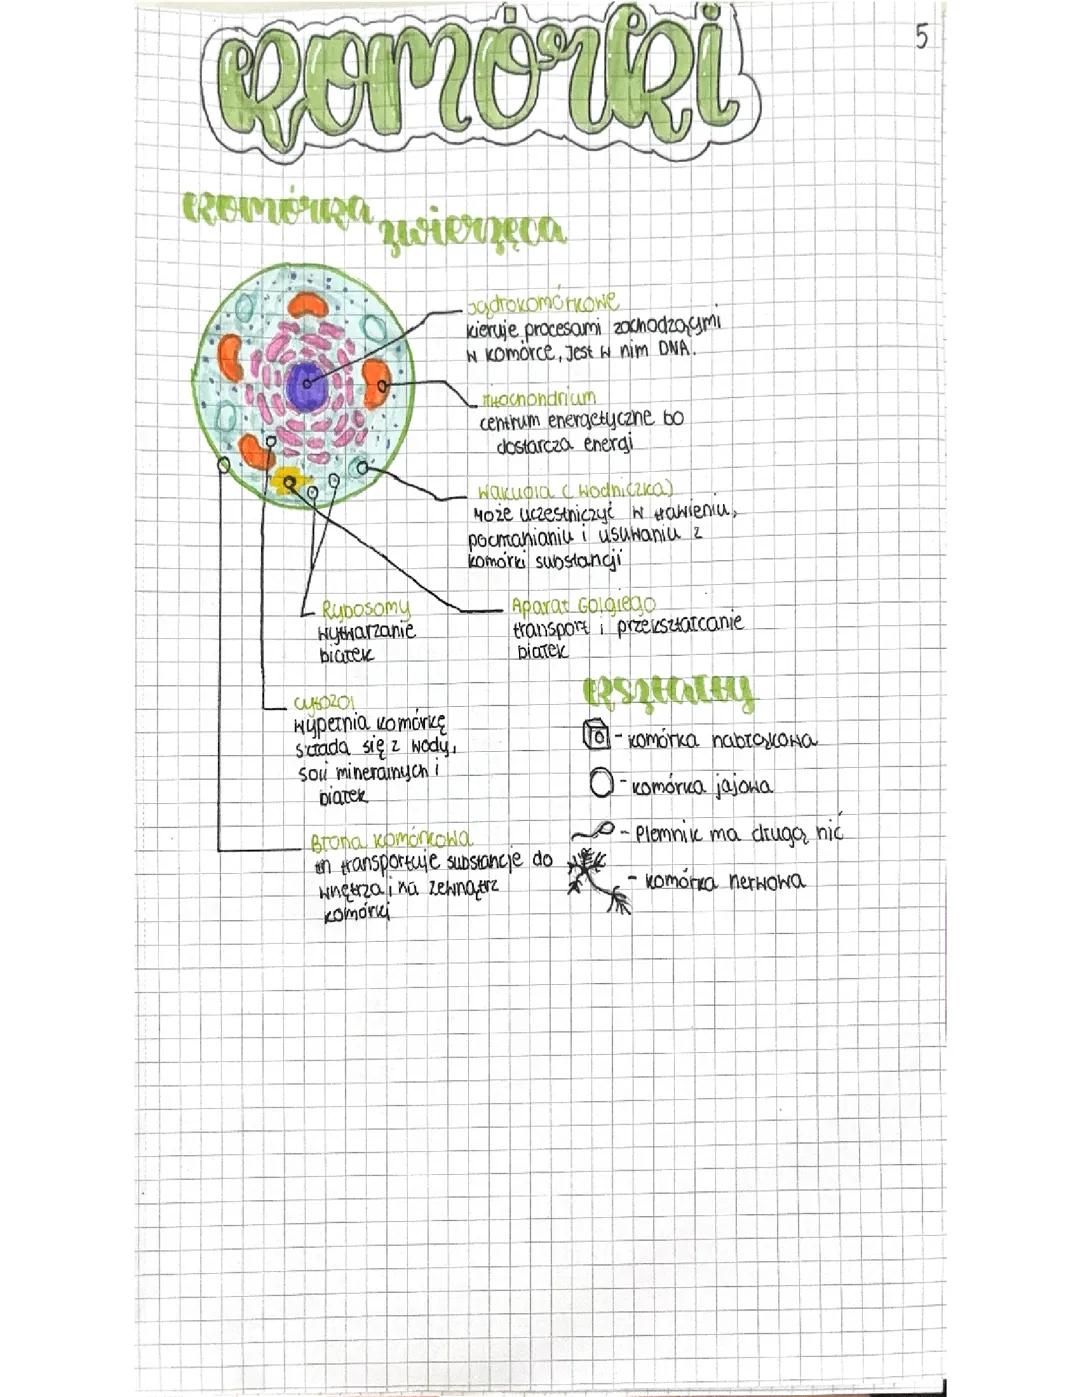 Komórki
5
komórka zwierzęca
Jądrokomórkowe
kieruje procesami zachodzącymi
w komórce, Jest w nim DNA.
mitochondrium
centrum energetyczne bo
dostarcza energi
wakuola (wodniczka)
Może uczestniczyć w trawieniu,
pochłanianiu i usuwaniu z
komórki substancji
Rybosomy
wytwarzanie
białek
Aparat Golgiego
transport i przekształcanie
białek
cytozol
wypełnia komórkę
składa się z wody,
soli mineralnych i
białek
Błona komórkowa
m transportuje substancje do
wnętrza i na zewnątrz
komórki
kształty
- komórka nabłoskowa
- komórka jajowa
- Plemnik ma długą nić
- komórka nerwowa